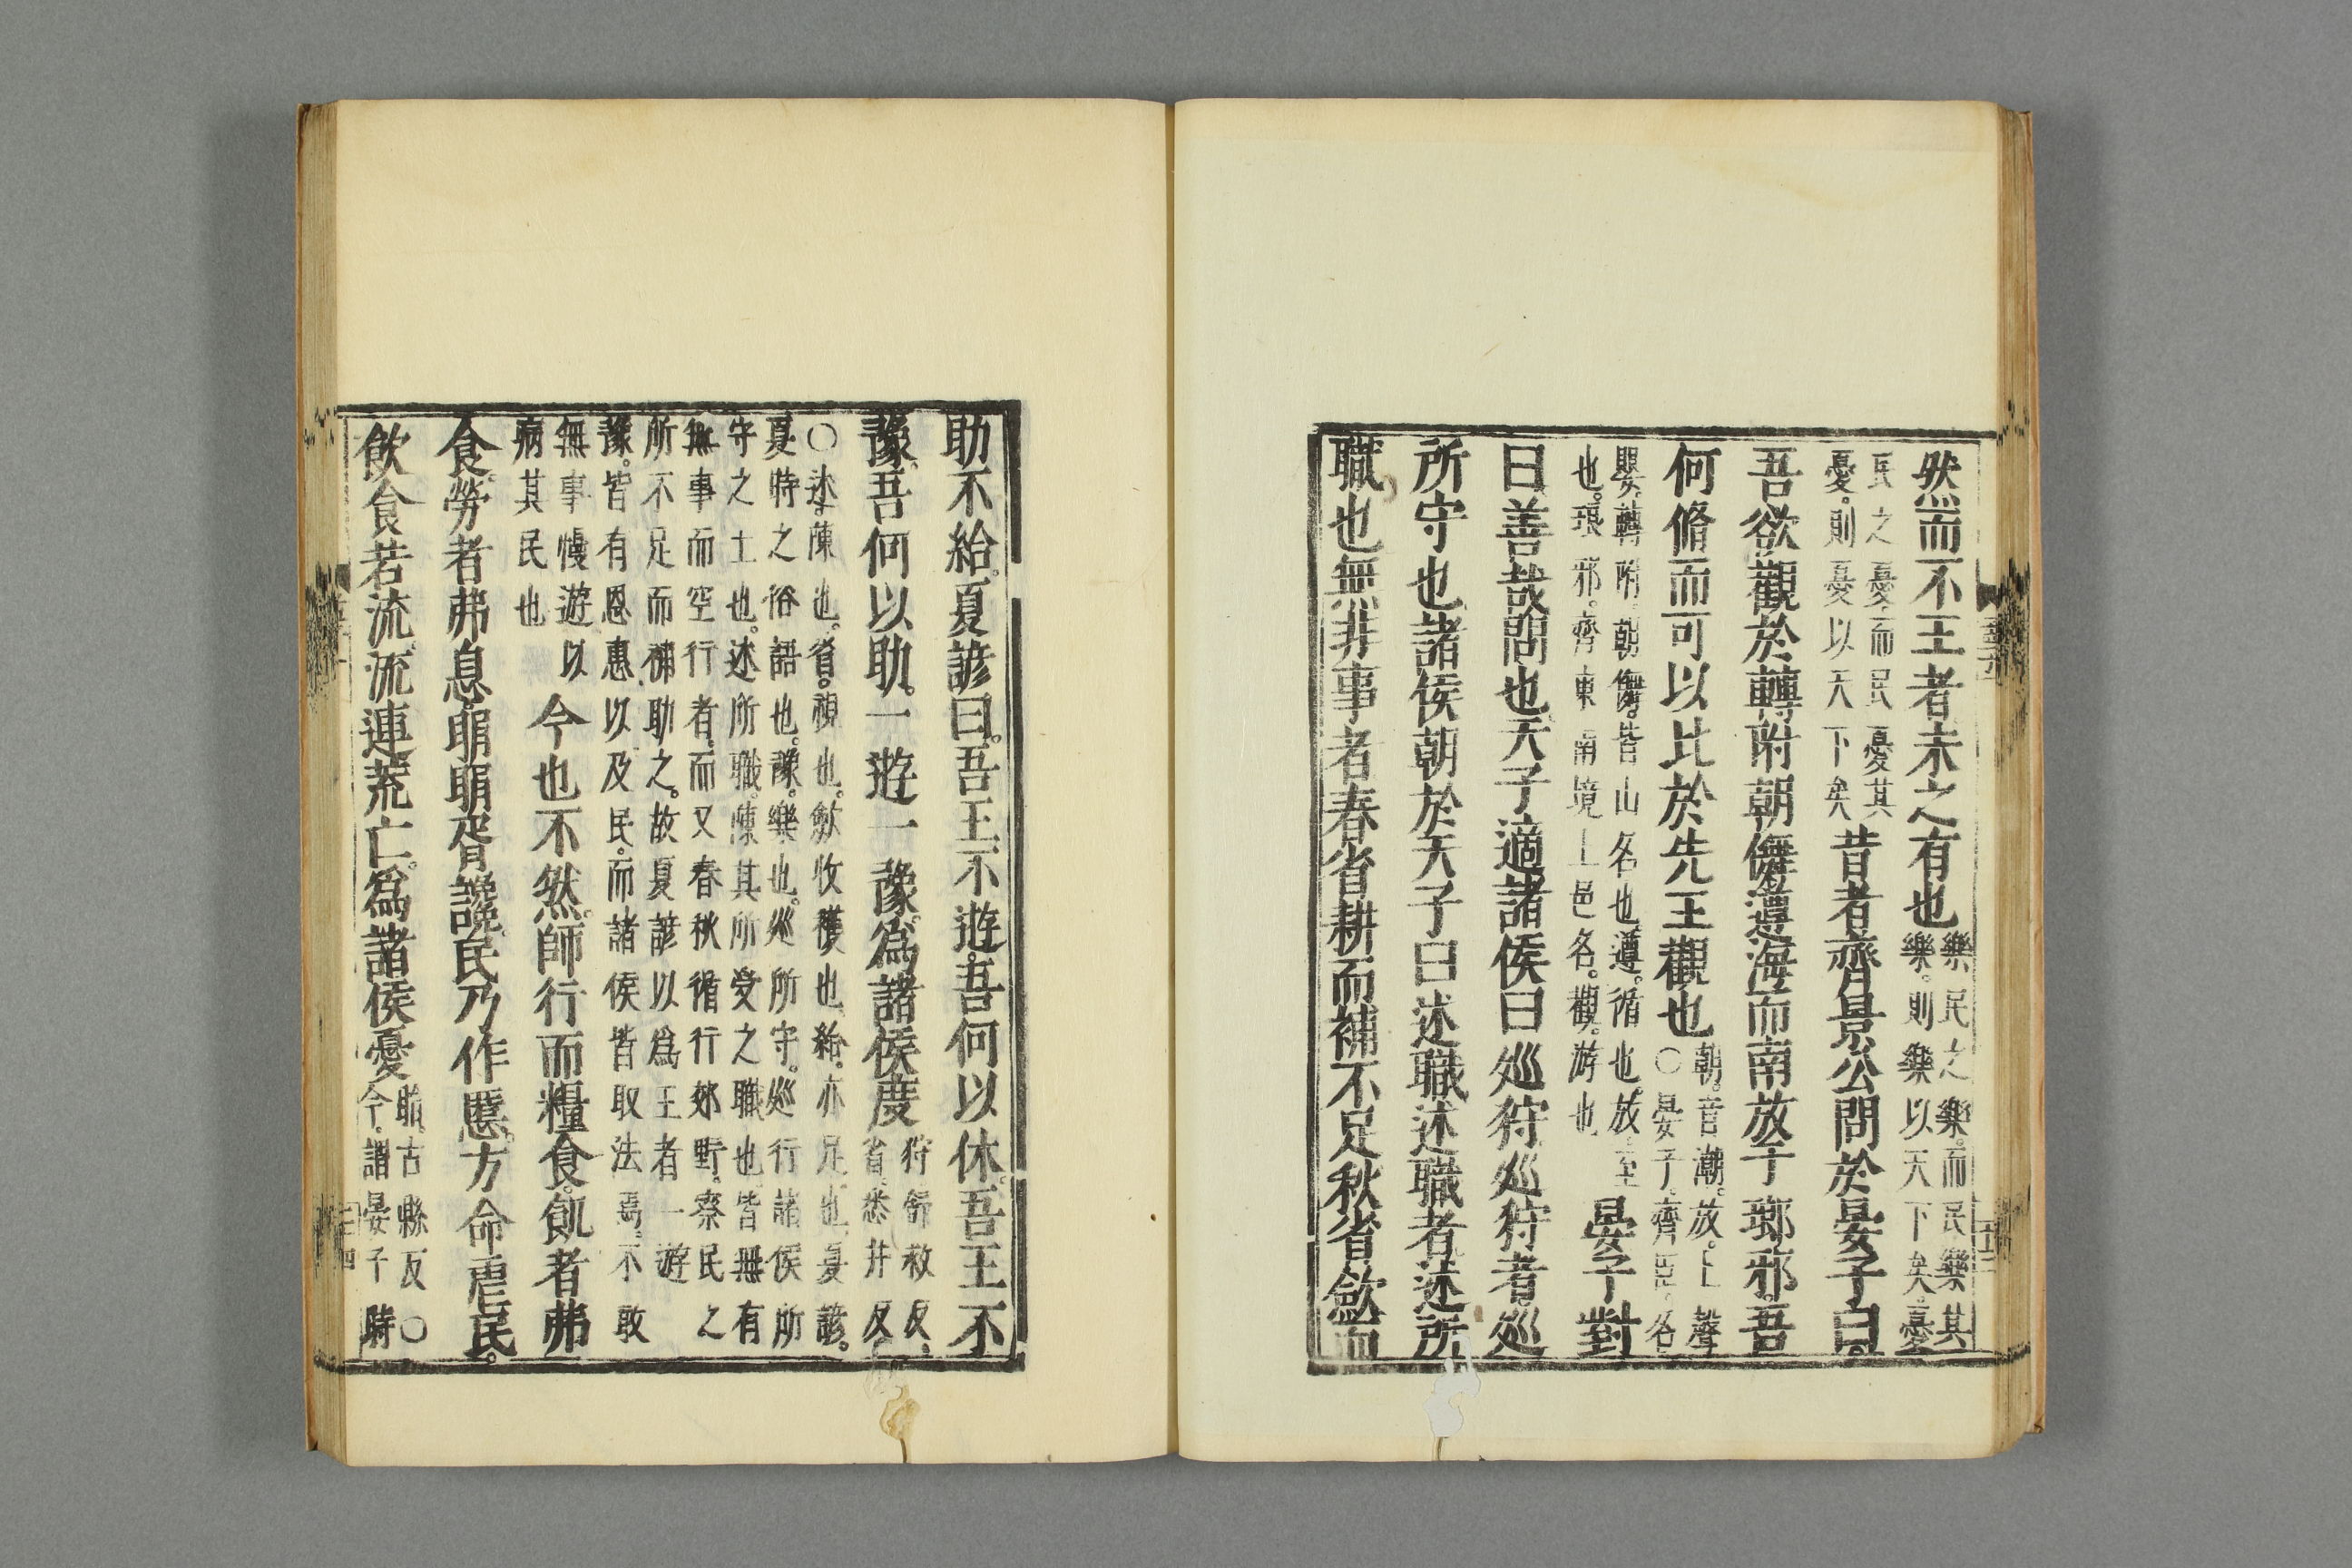 然而不王者未之有也
樂民之樂。而民樂其
樂。則樂以天下矣。憂
民之憂。而民憂其
憂。則憂以天下矣
昔者齊景公問於晏子曰。
吾欲觀於轉附朝儛遵海而南放于瑯邪。吾
何脩而可以比於先王觀也
朝。音潮。放。上聲
○晏子。齊臣。名
嬰。轉附。朝儛。皆山名也。遵。循也。放。至
也。琅邪。齊東南境上邑名。觀。游也
晏子對
曰善哉問也天子適諸侯曰巡狩巡狩者。巡
所守也諸侯朝於天子曰述職述職者述所
職也無非事者春省耕而補不足秋省斂而
助不給。夏諺曰。吾王不遊。吾何以休。吾王不
豫。吾何以助。一遊一豫。爲諸侯度
狩舒救反。
省。悉井反
○述。陳也。省。視也。斂。收穫也。給。亦足也。夏諺。
夏時之俗語也。豫。樂也。巡所守。巡行諸侯所
守之土也。述所職。陳其所受之職也。皆無有
無事而空行者。而又春秋循行郊野。察民之
所不足而補助之。故夏諺以爲王者一遊
豫。皆有恩惠。以及民。而諸侯皆取法焉。不敢
無事慢遊以
病其民也
今也不然。師行而糧食。飢者弗
食。勞者弗息。睊睊胥讒。民乃作慝。方命虐民。
飲食若流。流連荒亡。爲諸侯憂
睊。古縣反○
今。謂晏子時